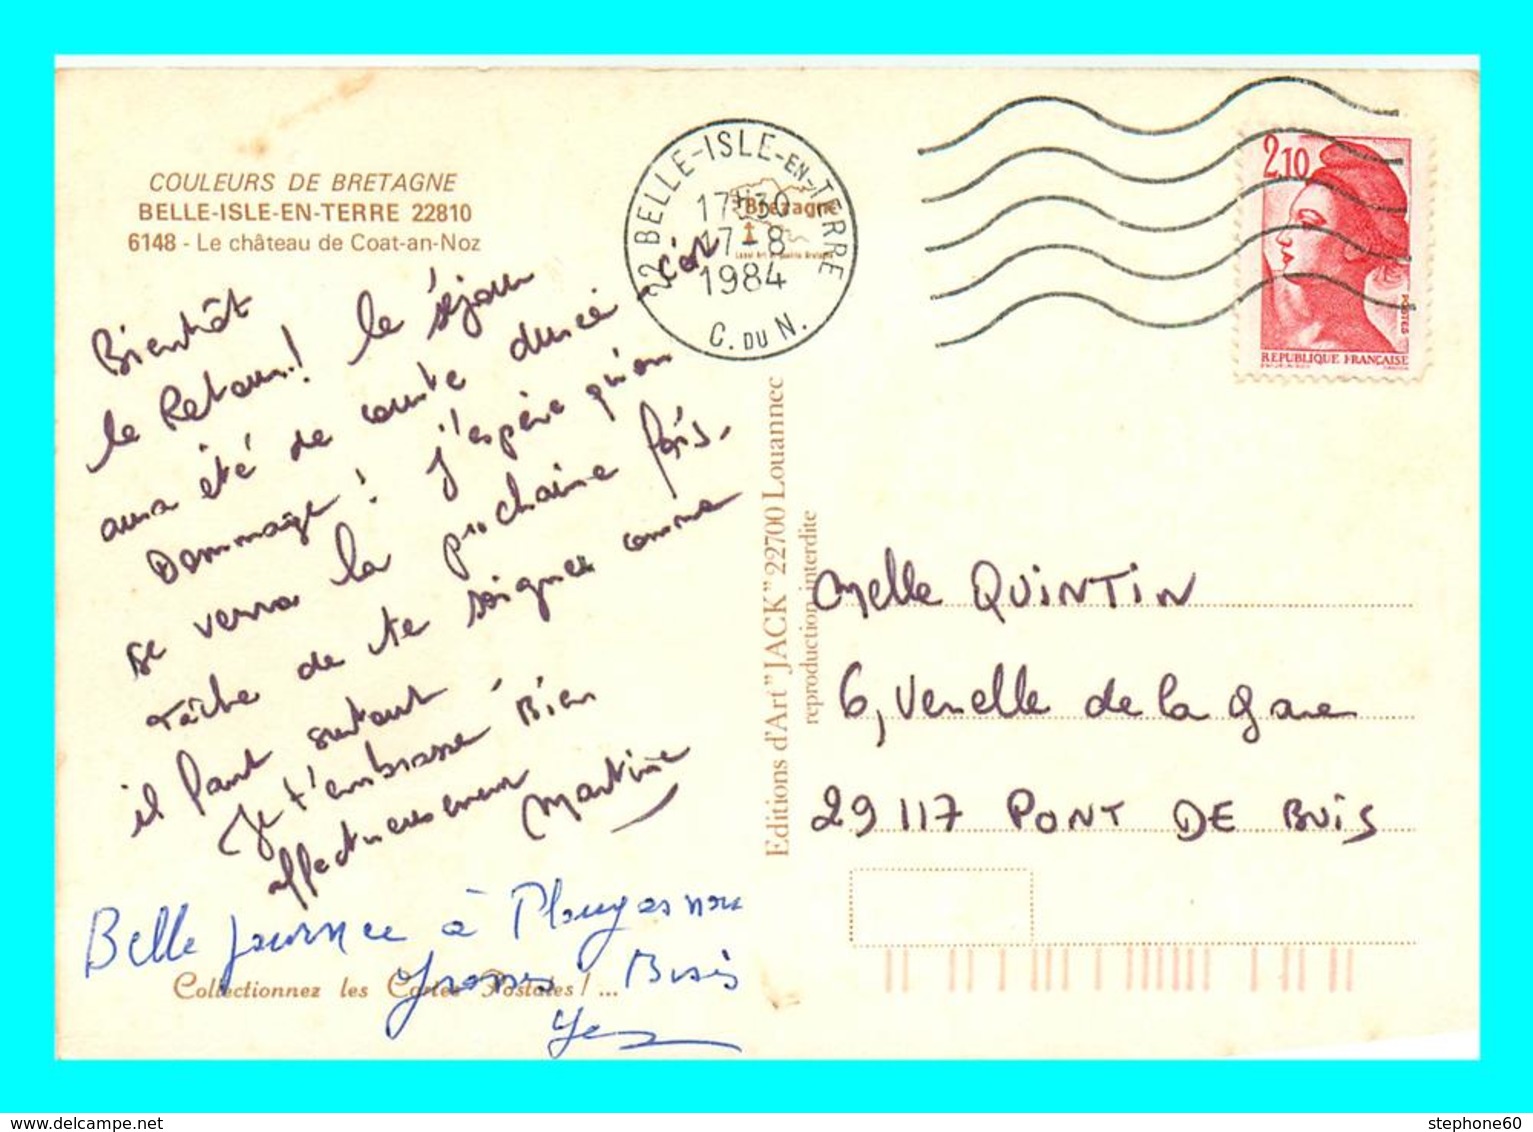 COULEURS DE BRETAGNE
BELLE-ISLE-EN-TERRE 22810
6148 - Le château de Coat-an-Noz
22 BELLE-ISLE-EN-TERRE
17H30
17-8
1984
C. DU N.
Bretagne
2,10
POSTES
REPUBLIQUE FRANÇAISE
Bientôt
le Retour! le séjour
aura été de courte durée cet
Dommage! J'espère qu'on
se verra la prochaine fois.
Tâche de te soigner comme
il faut surtout
Je t'embrasse Bien
affectueusement
Martine
Belle journee à Plougasnou
Bises
Collectionnez les Cartes Postales! ...
Editions d'Art "JACK" 22700 Louannec
reproduction interdite
Melle QUINTIN
6, Venelle de la gare
29117 PONT DE BUIS
stephone60